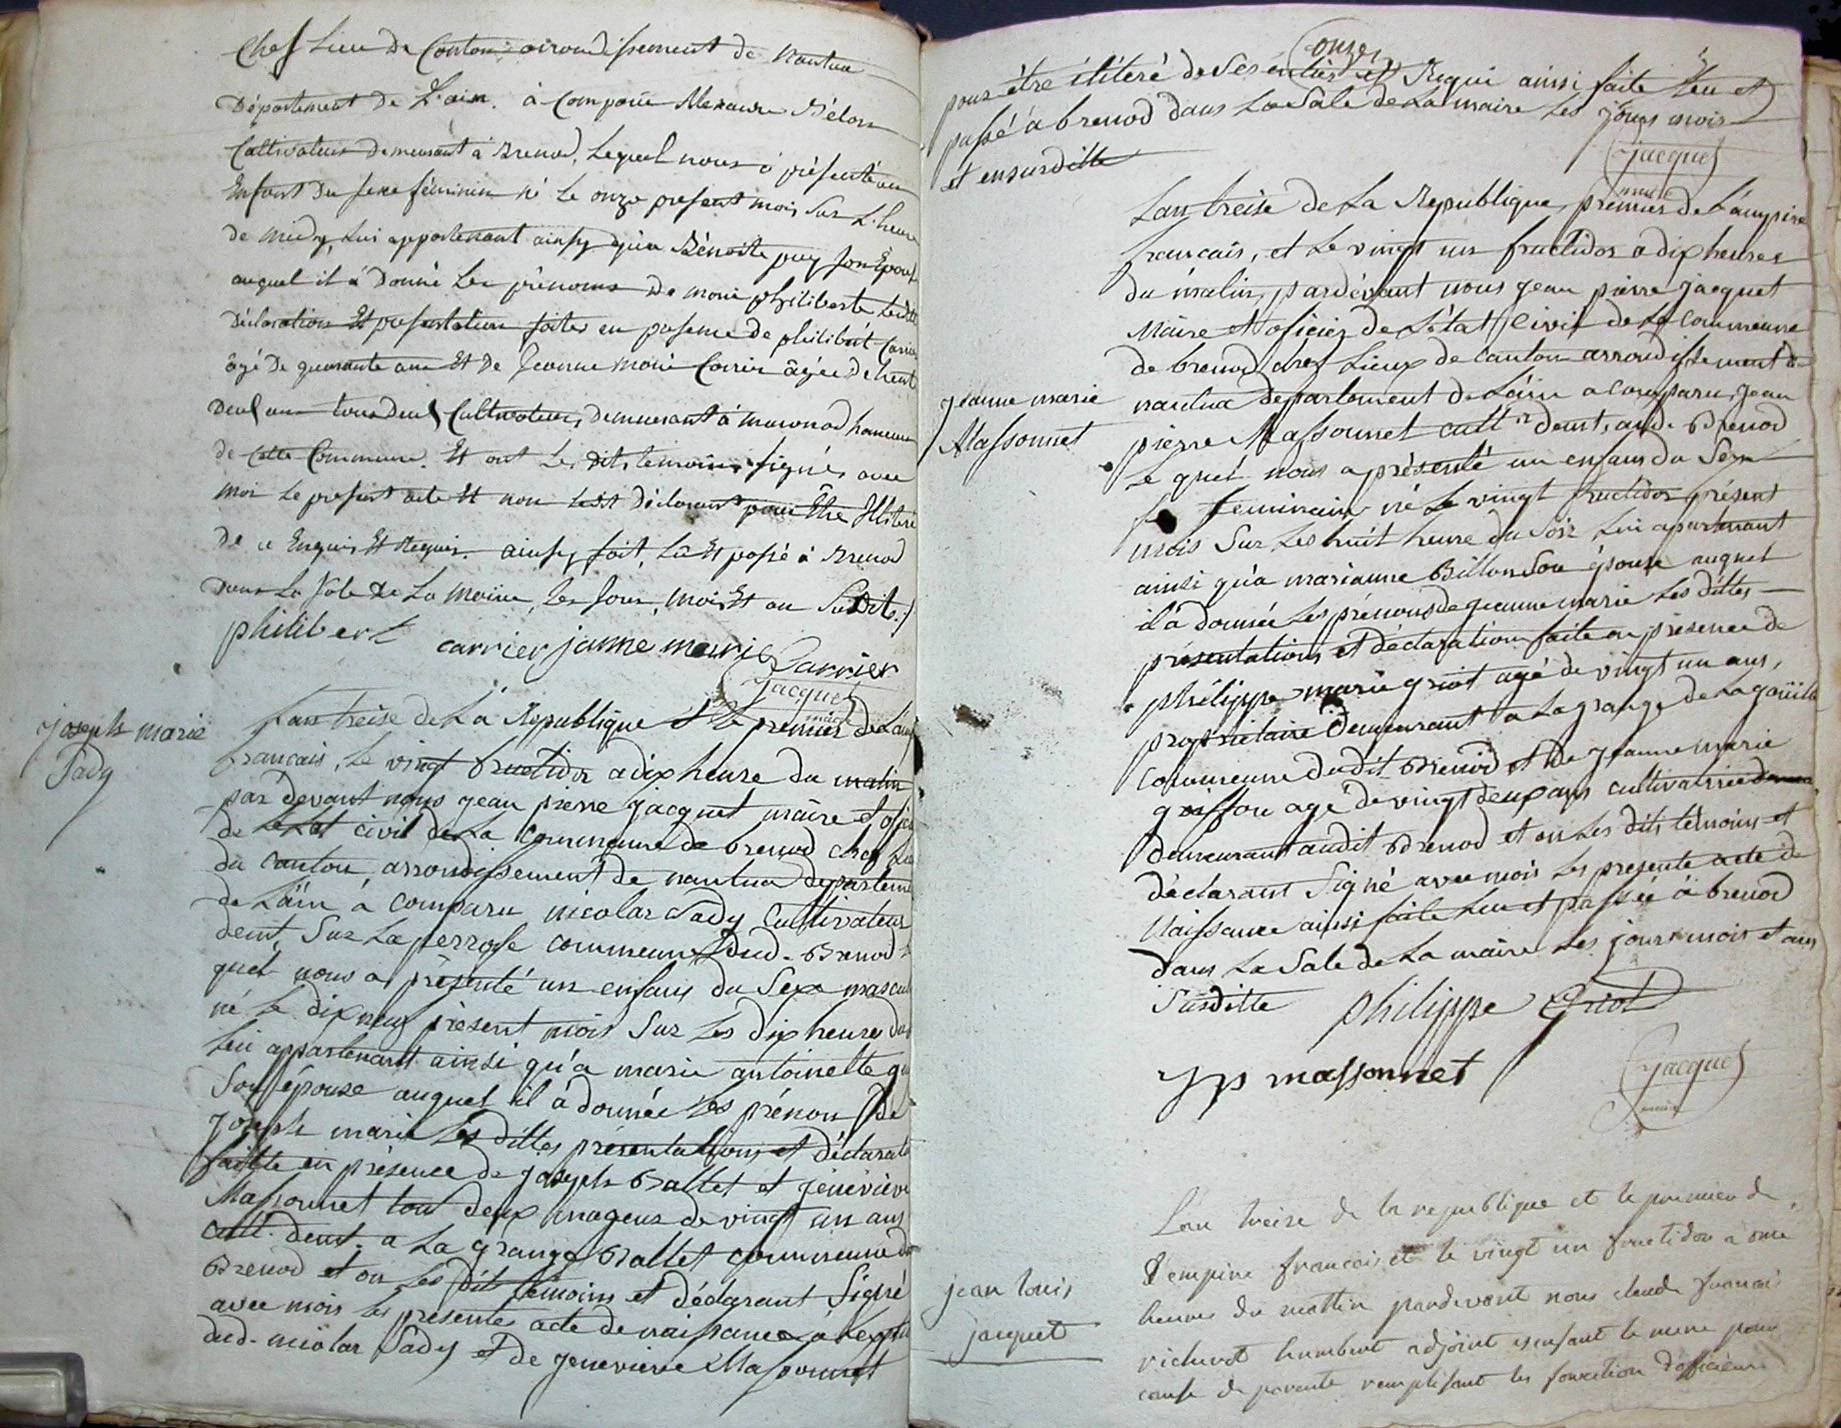 Chef Lieu de Canton arrondissement de Nantua
Département de L'ain. à Comparu Alexandre Bélon
Cultivateur demeurant à Brenod, Lequel nous à présenté un
Enfant du sexe féminin né Le onze present mois Sur L'heure
de midy, Lui appartenant ainsy qu'a Bénoite puy son Epouse
auquel il à Donné Les prénoms de marie philiberte Lesdites
Déclaration Et presentation faites en presence de philibért Carrier
âgé De quarante ans Et De Jeanne marie Carrier âgée De trente
Deux ans tous deux Cultivateurs, demeurant à macconod hameau
de Cette Commune. Et ont Les dits temoins signés avec
moi Le present acte Et non Ledit Déclarant pour Être Illiteré
De ce Enquis Et Requis. ainsy fait, Lû Et passé à Brenod
Dans La Sale De La Mairie, Les Jour, Mois Et an Susdits./
philibert carrier janne marie Carrier
Jacquet
maire
joseph marie
Sady
Lan treise de La Republique et le premier de Lamp
francais, Le vingt fructidor a dix heure du matin
par devant nous jean pierre jacquet maire et offici
de Letat civil de La commune de brenod chef Lieu
du canton, arrondissement de nantua departeme
de L'ain à comparu nicolas Sady Cultivateur
demt. Sur La perrosse commune dud. Brenod Le
quel nous a présenté un enfans du Sexe mascul
né Le dix neuf présent mois Sur Les dix heures du
Lui appartenant ainsi qu'a marie antoinette
Son épouse auquel il à donnée Les prénom de
joseph marie Les dittes présentations et déclarat
faitte en présence de joseph Ballet et jéneviève
Massonnet tout deux mageur de vingt un ans
cult. demt. a La grange Ballet commune de
Brenod et on Les dits témoins et déclarant Signé
avec mois Les presente acte de naissance à Lexption
dud. nicolas Sady et de jenevieve Massonnet
pour être iliteré de Ses enquis et Requi ainsi faite Leu et
onze
passé a brenod dans La Sale de La maire Les jours mois
et ensusditte
Jacquet
maire
Lan treise de La Republique, premier de L'ampire
francais, et Le vingt un fructidor a dix heures
du matin, pardévant nous jean pierre jacquet
Maire et oficier de L'état Civil de La commune
de brenod chef Lieux de canton arrondissement de
nantua departement de L'ain a comparu, jean
pierre Massonnet cultr. demt. aud. Brenod
Le quel nous a présenté un enfans du Sexe
feminain né Le vingt fructidor présent
mois Sur Les huit heure du Soir Lui apartenant
ainsi qu'a marianne Billon Son épouse auquel
il à donnée Les prénoms de jeanne marie Les dittes
présentations et déclaration faite en présence de
philippe marie griot agé de vingt un ans,
proprietaire demeurant a La grange de La gouille
commune dudit Brenod et de jeanne marie
goiffon agé de vingt deux ans cultivatrice
demeurant audit Brenod et on Les dits témoins et
déclarant Signé avec mois Les presente acte de
Naissance ainsi faite Leu et passée à brenod
dans La Sale de La maire Les jours mois et ans
Susditte philippe Griot
jp massonnet
Jacquet
maire
jeanne marie
Massonnet
Lan treize de la republique et le premier de
L'empire francois, et le vingt un fructidor à onze
heures du mattin pardevant nous claude francois
richerot humbert adjoint exersant le mere pour
cause de parente remplisant les fonction d'officier
jean louis
jacquet